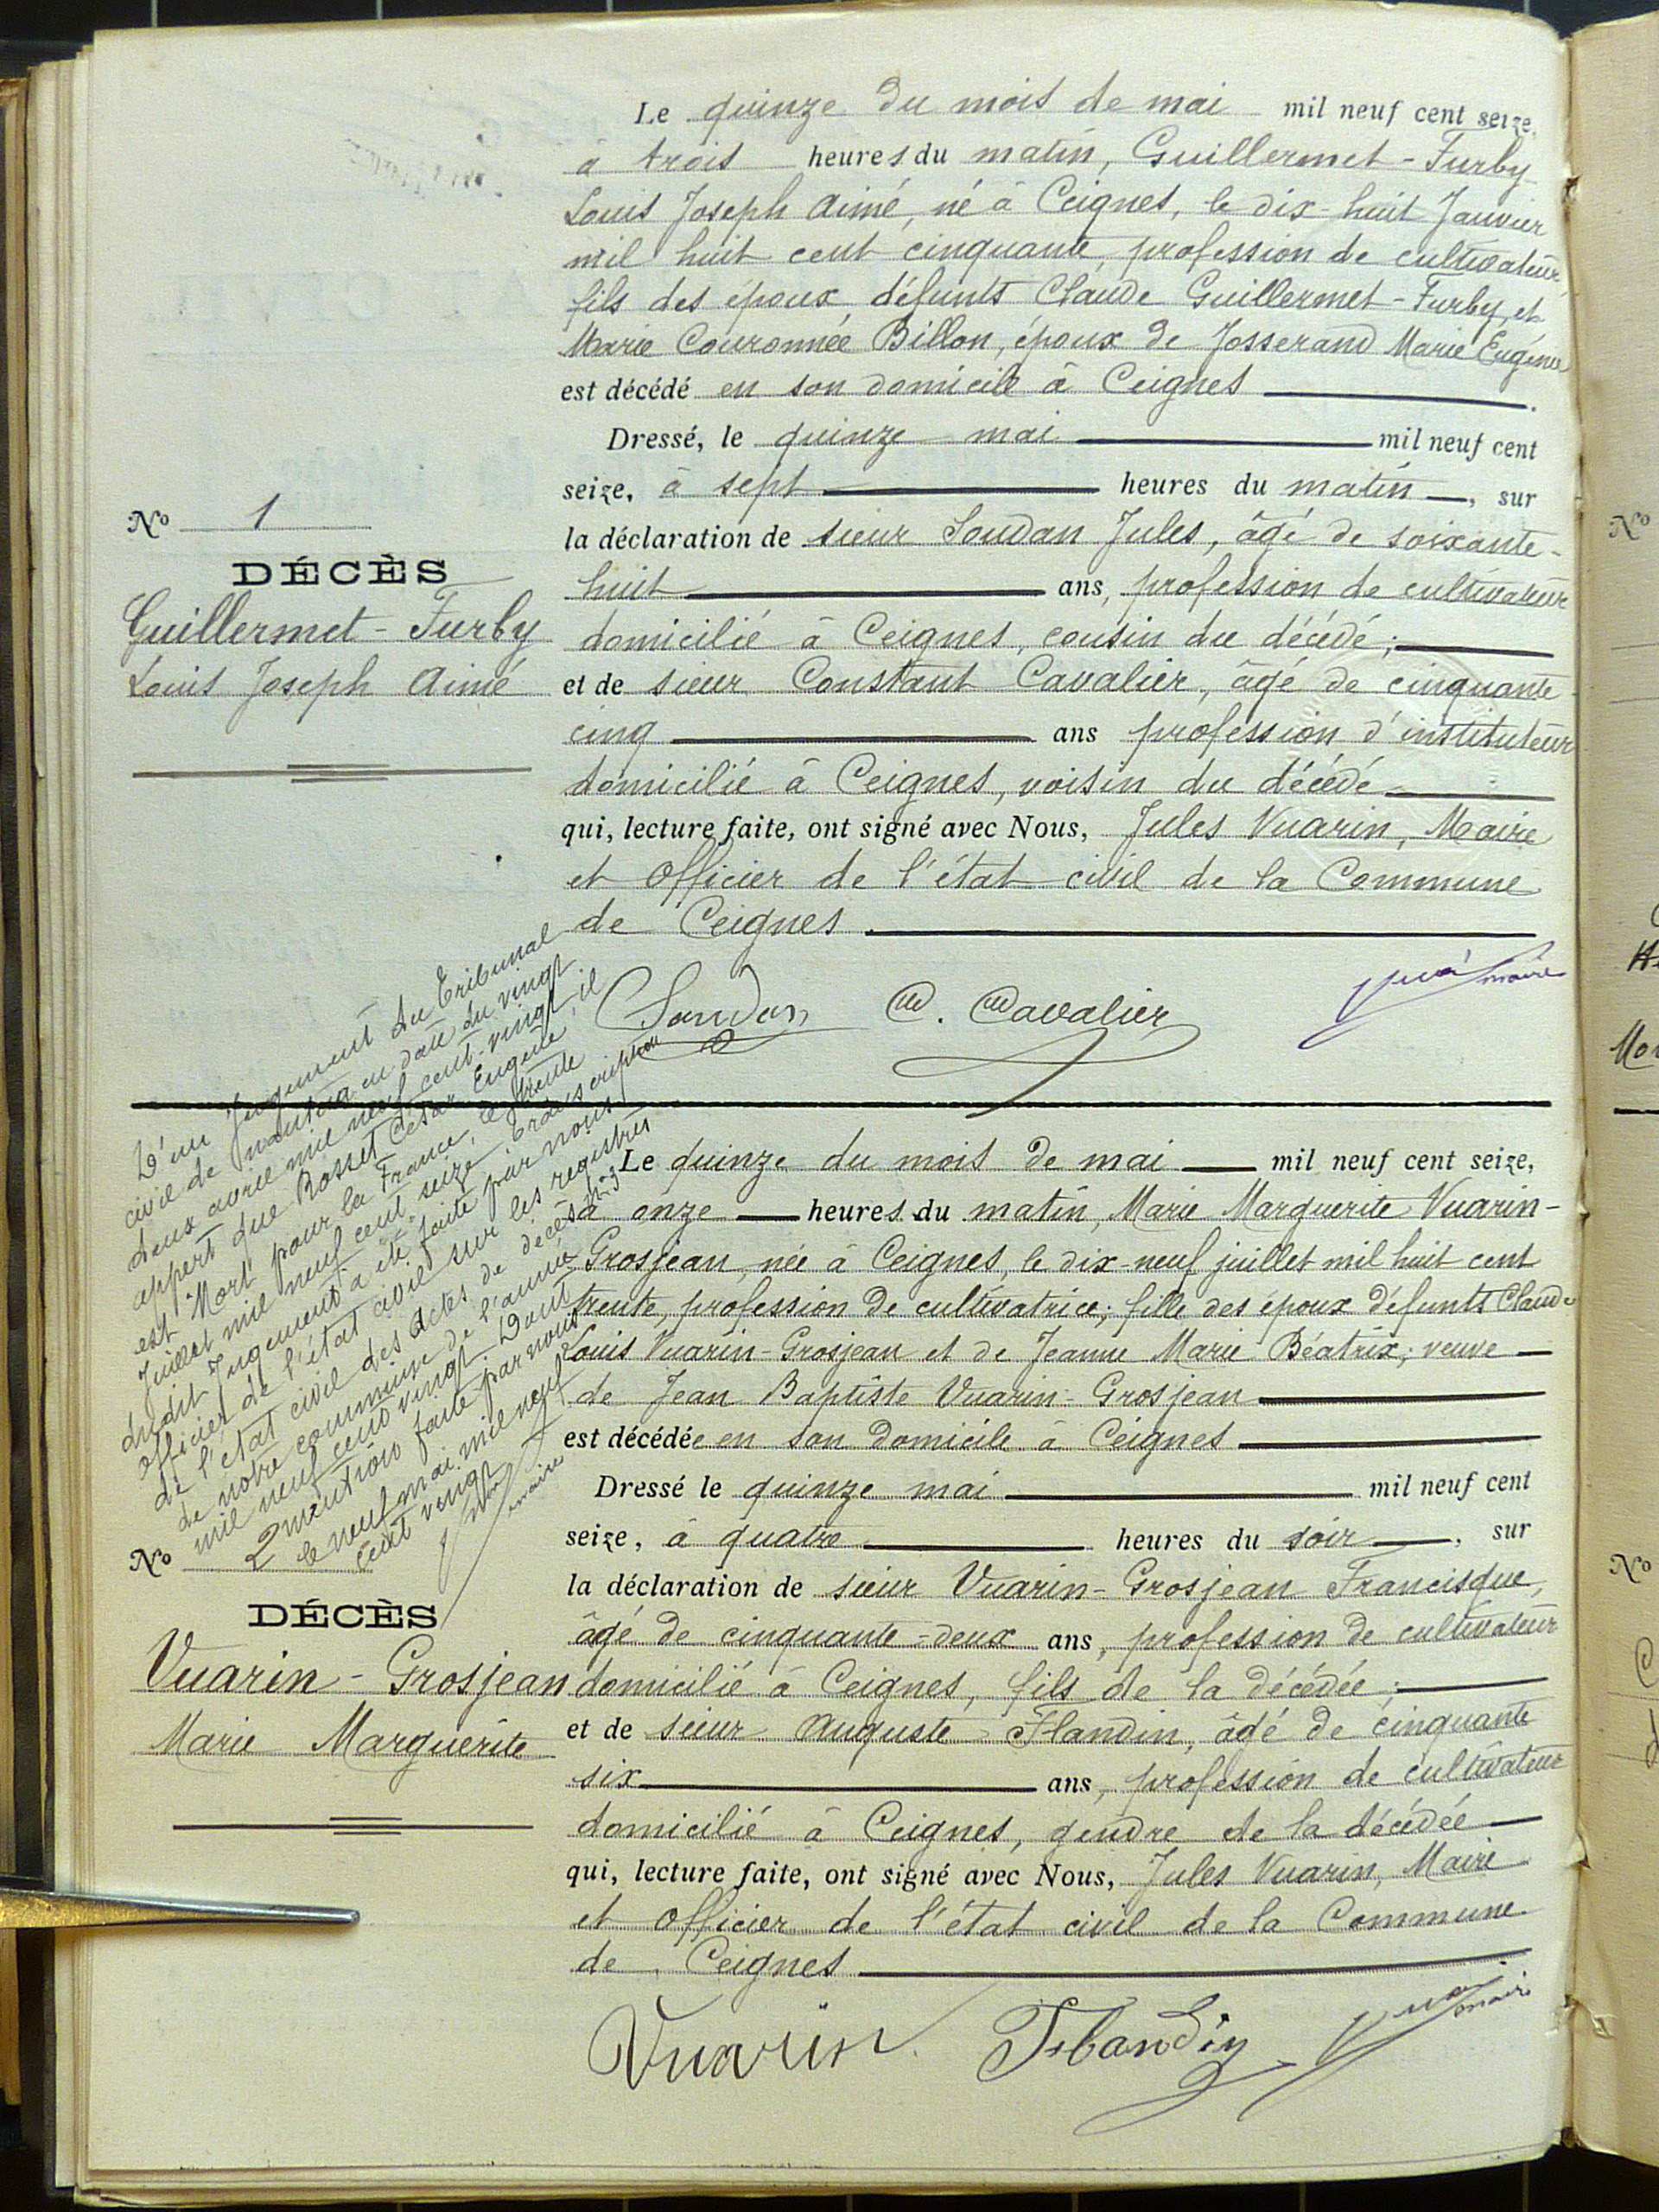 Le quinze du mois de mai mil neuf cent seize,
à trois heures du matin, Guillermet-Furby
Louis Joseph Aimé, né à Ceignes, le dix-huit Janvier
mil huit cent cinquante, profession de cultivateur,
fils des époux défunts Claude Guillermet-Furby, et
Marie Couronnée Billon, époux de Josserand Marie Eugénie
est décédé en son domicile à Ceignes
Dressé, le quinze mai mil neuf cent
seize, à sept heures du matin, sur
la déclaration de sieur Soudan Jules, âgé de soixante-
huit ans, profession de cultivateur
domicilié à Ceignes, cousin du décédé;
et de sieur Constant Cavalier, âgé de cinquante
cinq ans profession d'instituteur
domicilié à Ceignes, voisin du décédé
qui, lecture faite, ont signé avec Nous, Jules Vuarin, Maire
et Officier de l'état civil de la Commune
de Ceignes
Nº 1
DÉCÈS
Guillermet-Furby
Louis Joseph Aimé
Soudan C. Cavalier maire
D'un Jugement du Tribunal
civil de Nantua en date du vingt
deux avril mil neuf cent-vingt, il
appert que Rosset César Eugène
est "Mort pour la France, le trente
Juillet mil neuf cent-seize transcription
dudit Jugement a été faite par nous
officier de l'état civil sur les registres
de l'état civil des actes de décès nº 3
de notre commune de l'année
mil neuf cent vingt Dont
mention faite par nous
le neuf mai mil neuf
cent vingt
maire
Le quinze du mois de mai mil neuf cent seize,
à onze heures du matin, Marie Marguerite Vuarin-
Grosjean, née à Ceignes, le dix-neuf juillet mil huit cent
trente, profession de cultivatrice; fille des époux défunts Claude
Louis Vuarin-Grosjean et de Jeanne Marie Béatrix; veuve
de Jean Baptiste Vuarin-Grosjean
est décédée en son domicile à Ceignes
Dressé le quinze mai mil neuf cent
seize, à quatre heures du soir, sur
la déclaration de sieur Vuarin-Grosjean Francisque,
âgé de cinquante-deux ans, profession de cultivateur
domicilié à Ceignes, fils de la décédée;
et de sieur Auguste Flandin, âgé de cinquante
six ans, profession de cultivateur
domicilié à Ceignes, gendre de la décédée
qui, lecture faite, ont signé avec Nous, Jules Vuarin, Maire
et Officier de l'état civil de la Commune
de Ceignes
Nº 2
DÉCÈS
Vuarin-Grosjean
Marie Marguerite
Vuarin Flandin maire
Nº
Nº